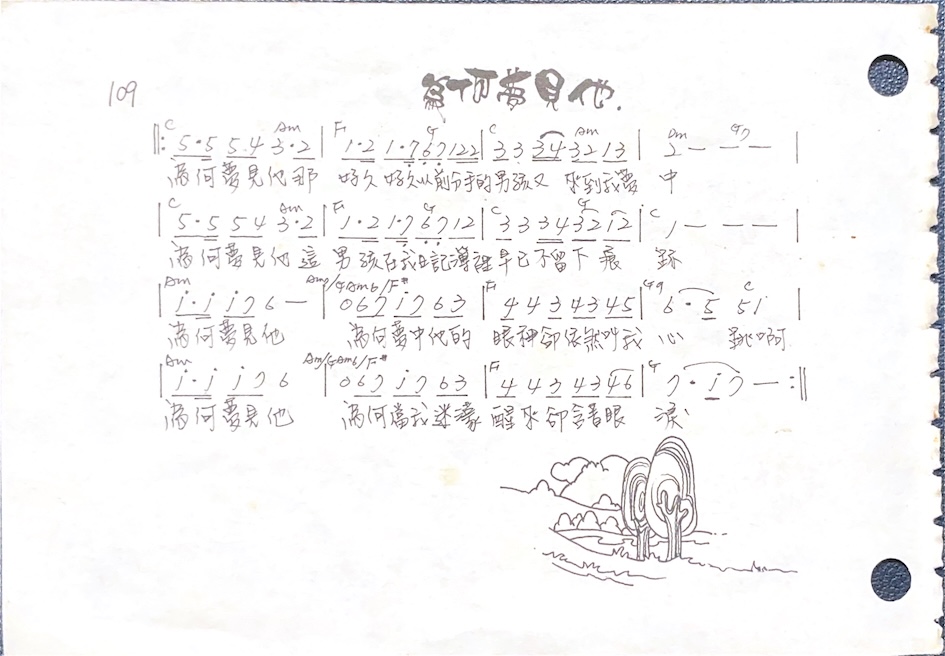 109
為何夢見他.
C Am F G C Am Dm G7
‖: 5·5 5 4 3·2 | 1·2 1·7 67 122 | 3 3 34 32 13 | 2 — — — |
為何夢見他那 好久好久以前分手的男孩又 來到我夢 中
C Am F G C G C
| 5·5 5 4 3·2 | 1·2 1·7 67 12 | 3 3 34 32 12 | 1 — — — |
為何夢見他這 男孩在我日記簿裡早已不留下痕 跡
Am Am/G Am6/F# F G9 C
| i·i i 7 6 — | 0 6 7 i 7 6 3 | 4 4 3 4 3 4 5 | 6·5 5 i |
為何夢見他 為何夢中他的 眼神卻依然叫我 心 跳啊
Am Am/G Am6/F# F G
| i·i i 7 6 | 0 6 7 i 7 6 3 | 4 4 3 4 3 4 6 | 7·i 7 — :‖
為何夢見他 為何當我迷濛 醒來卻含著眼 淚